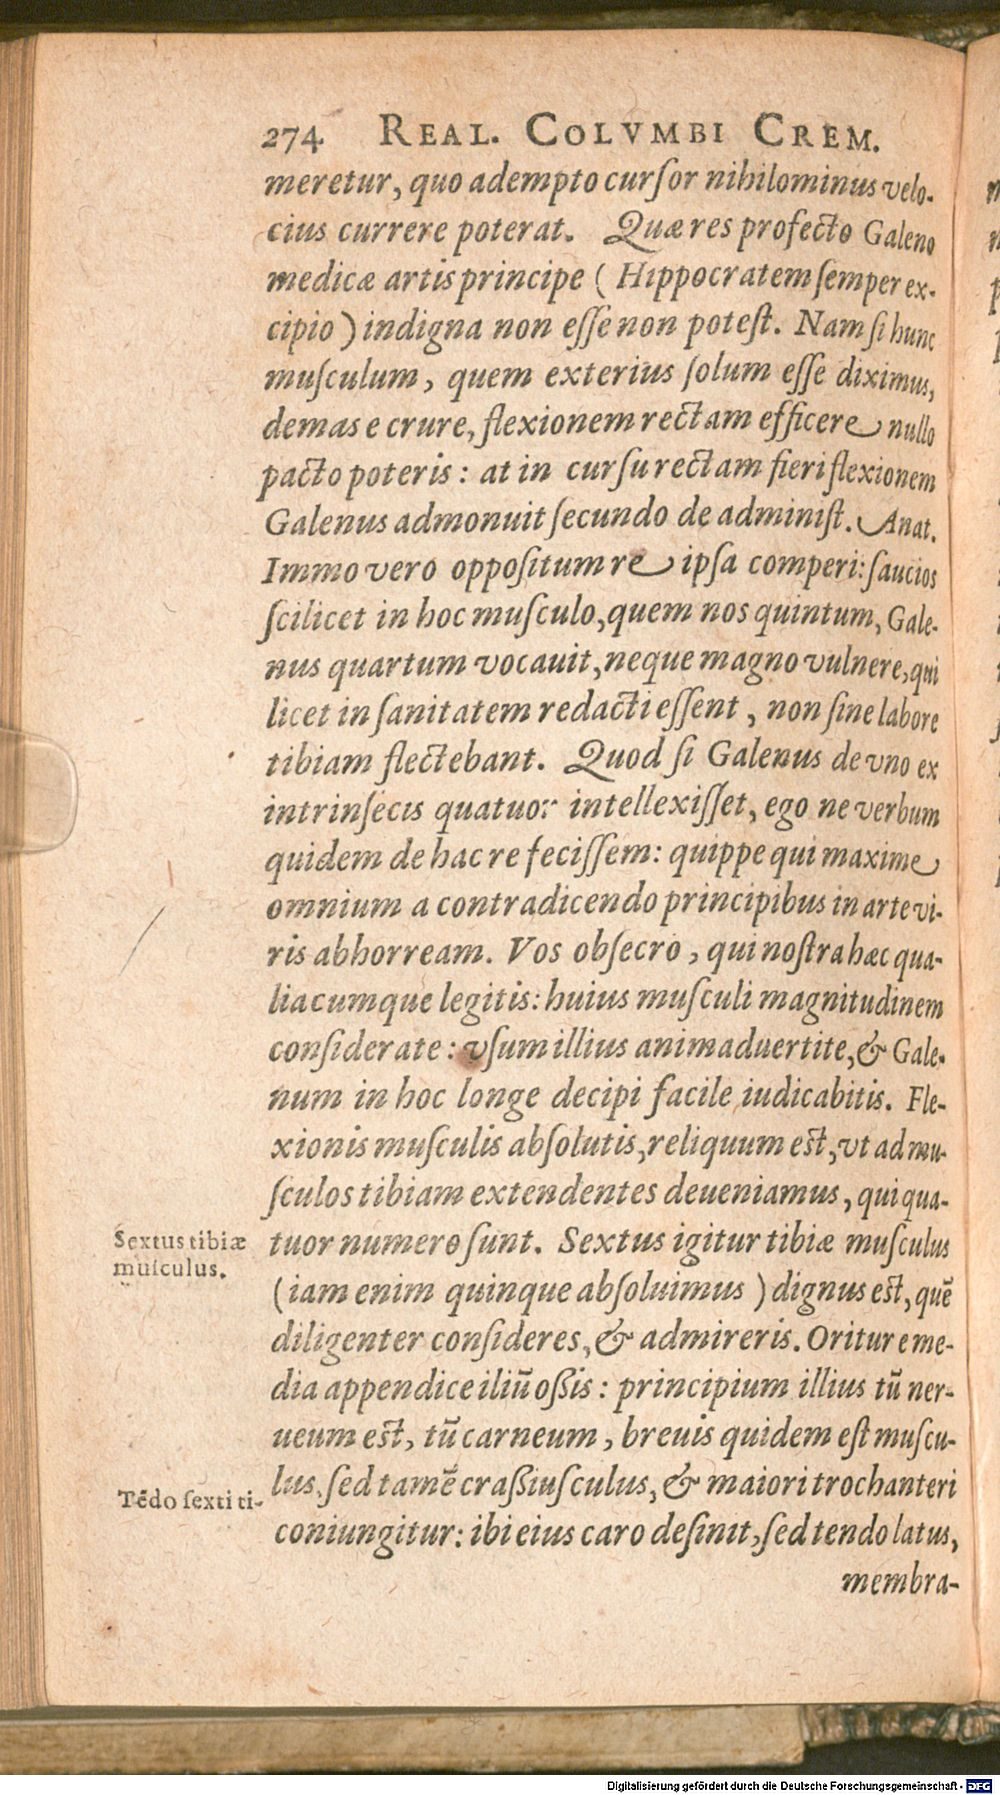 274 REAL. COLVMBI CREM.
meretur, quo adempto curſor nihilominus velo-
cius currere poterat. Quæ res profecto Galeno
medicæ artis principe ( Hippocratem ſemper ex-
cipio ) indigna non eſſe non poteſt. Nam ſi hunc
muſculum, quem exterius ſolum eſſe diximus,
demas e crure, flexionem rectam efficere nullo
pacto poteris : at in curſu rectam fieri flexionem
Galenus admonuit ſecundo de adminiſt. Anat.
Immo vero oppoſitum re ipſa comperi: ſaucios
ſcilicet in hoc muſculo, quem nos quintum, Gale-
nus quartum vocauit, neque magno vulnere, qui
licet in ſanitatem redacti eſſent , non ſine labore
tibiam flectebant. Quod ſi Galenus de vno ex
intrinſecis quatuor intellexiſſet, ego ne verbum
quidem de hac re feciſſem: quippe qui maxime
omnium a contradicendo principibus in arte vi-
ris abhorream. Vos obſecro , qui noſtra hæc qua-
liacumque legitis: huius muſculi magnitudinem
conſiderate : vſum illius animaduertite, & Gale-
num in hoc longe decipi facile iudicabitis. Fle-
xionis muſculis abſolutis, reliquum est, vt ad mu-
ſculos tibiam extendentes deueniamus, qui qua-
Sextus tibiæ
muſculus.
tuor numero ſunt. Sextus igitur tibiæ muſculus
(iam enim quinque abſoluimus ) dignus est, quē
diligenter conſideres, & admireris. Oritur e me-
dia appendice iliū oßis : principium illius tū ner-
ueum est, tū carneum , breuis quidem eſt muſcu-
lus, ſed tamē craßiuſculus, & maiori trochanteri
Tēdo ſexti ti-
coniungitur: ibi eius caro deſinit, ſed tendo latus,
membra-
Digitalisierung gefördert durch die Deutsche Forschungsgemeinschaft - DFG